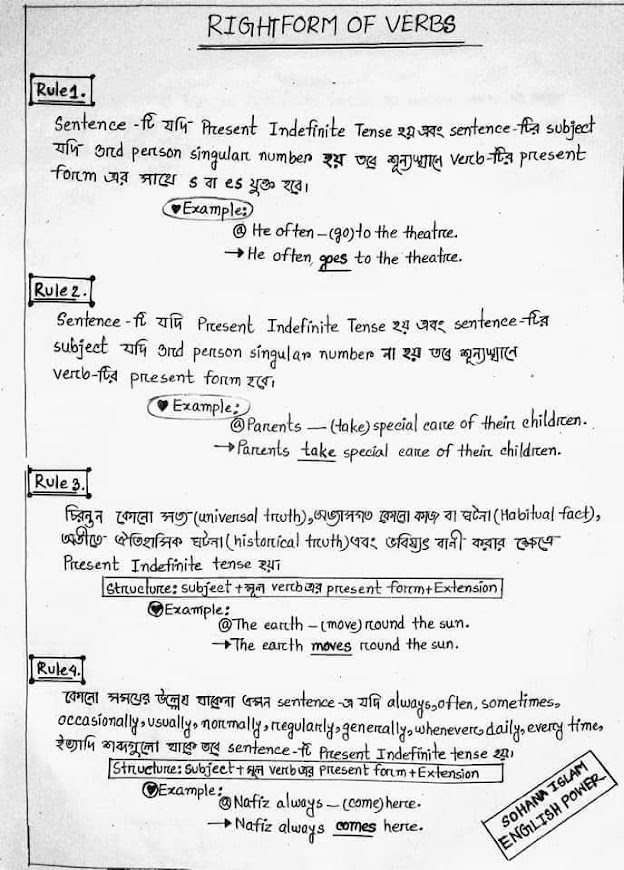 RIGHT FORM OF VERBS
Rule 1.
Sentence - টি যদি Present Indefinite Tense হয় এবং sentence-টির subject
যদি 3rd person singular number হয় তবে শূন্যস্থানে verb-টির present
form এর সাথে s বা es যুক্ত হবে।
♥Example:
@ He often – (go) to the theatre.
→ He often, goes to the theatre.
Rule 2.
Sentence - টি যদি Present Indefinite Tense হয় এবং sentence-টির
subject যদি 3rd person singular number না হয় তবে শূন্যস্থানে
verb-টির present form হবে।
♥ Example:
@ Parents — (take) special care of their children.
→ Parents take special care of their children.
Rule 3.
চিরন্তন কোনো সত্য (universal truth), অভ্যাসগত কোনো কাজ বা ঘটনা (Habitual fact),
অতীতে ঐতিহাসিক ঘটনা (historical truth) এবং ভবিষ্যৎ বানী করার ক্ষেত্রে
Present Indefinite tense হয়।
Structure: subject + মূল verb এর present form + Extension
♥Example:
@ The earth – (move) round the sun.
→ The earth moves round the sun.
Rule 4.
কোনো সময়ের উল্লেখ থাকেনা এমন sentence-এ যদি always, often, sometimes,
occasionally, usually, normally, regularly, generally, whenever, daily, every time,
ইত্যাদি শব্দগুলো থাকে তবে sentence-টি Present Indefinite tense হয়।
Structure: Subject + মূল verb এর present form + Extension
♥Example:
@ Nafiz always – (come) here.
→ Nafiz always comes here.
SOHANA ISLAM
ENGLISH POWER